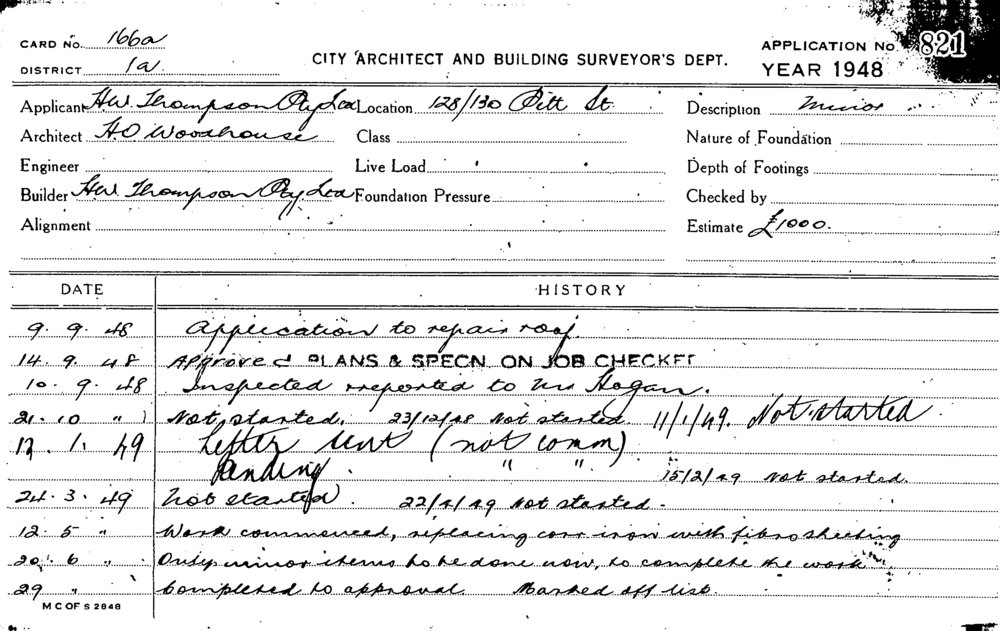 CARD No. 166a
DISTRICT 1a
CITY ARCHITECT AND BUILDING SURVEYOR'S DEPT.
APPLICATION No. 821
YEAR 1948
Applicant H.W. Thompson Pty Ltd Location 128/130 Pitt St Description Minor
Architect H O Woodhouse Class Nature of Foundation
Engineer Live Load Depth of Footings
Builder H.W. Thompson Pty. Ltd Foundation Pressure Checked by
Alignment Estimate £1000.
DATE HISTORY
9. 9. 48 Application to repair roof.
14. 9. 48 Approved PLANS & SPECN. ON JOB CHECKET
10. 9. 48 Inspected & reported to Mr Hogan.
21. 10 " Not started. 23/12/48 Not started 11/1/49. Not started
1. 49 Letter sent (not comm)
Pending " " 15/2/49 Not started.
24. 3. 49 Not started. 22/4/49 Not started.
12. 5 " Work commenced, replacing corr iron with fibro sheeting
20. 6 " Only minor items to be done now, to complete the work
29 " Completed to approval. Marked off list.
M C OF S 2848